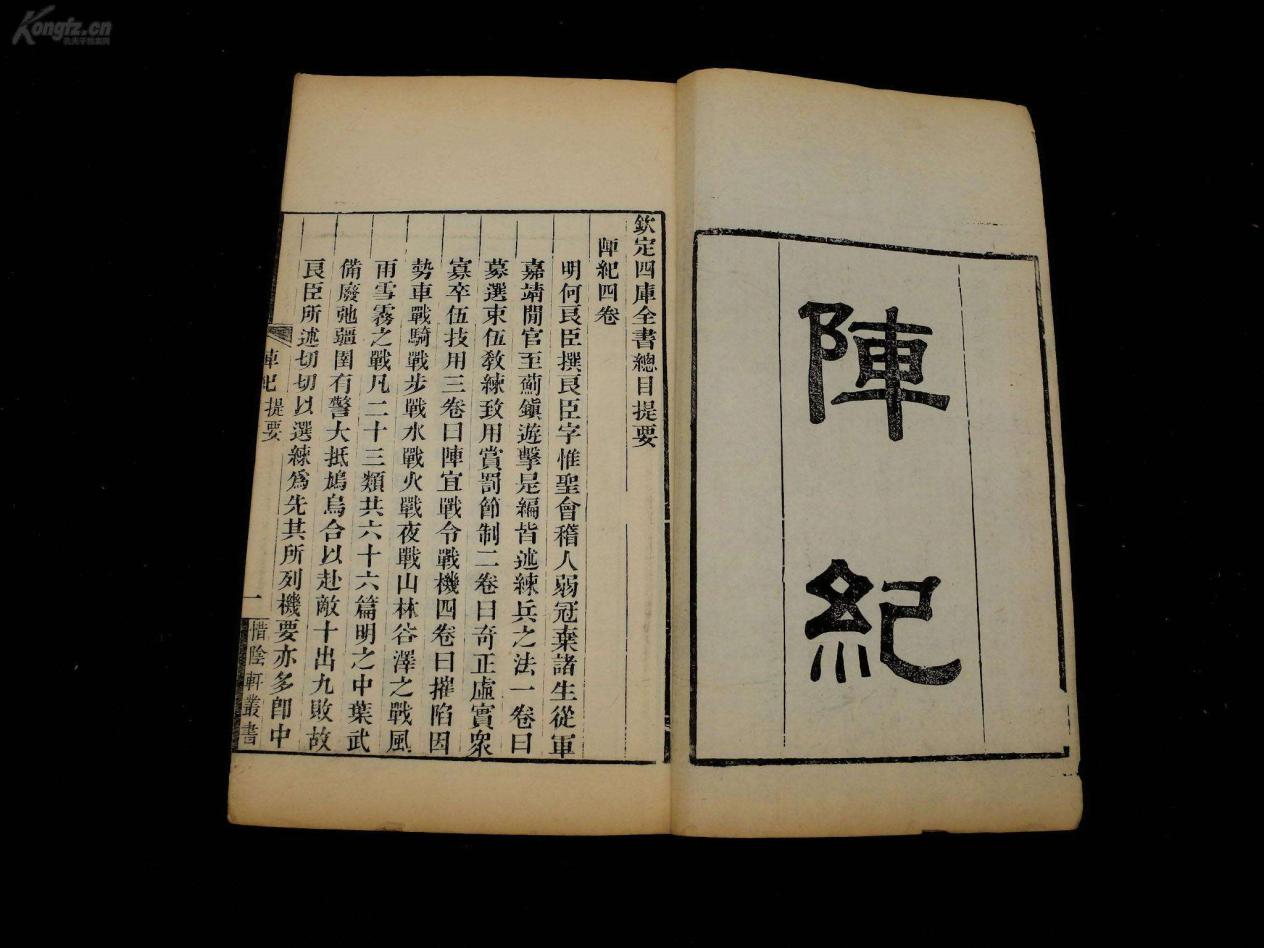 Kongfz.cn
陣紀
欽定四庫全書總目提要
陣紀四卷
明何良臣撰良臣字惟聖會稽人弱冠棄諸生從軍
嘉靖閒官至薊鎭遊擊是編皆述練兵之法一卷曰
募選束伍敎練致用賞罰節制二卷曰奇正虛實衆
寡卒伍技用三卷曰陣宜戰令戰機四卷曰摧陷因
勢車戰騎戰步戰水戰火戰夜戰山林谷澤之戰風
雨雪霧之戰凡二十三類共六十六篇明之中葉武
備廢弛疆圉有警大抵鳩烏合以赴敵十出九敗故
良臣所述切切以選練爲先其所列機要亦多卽中
陣紀提要
一
惜陰軒叢書